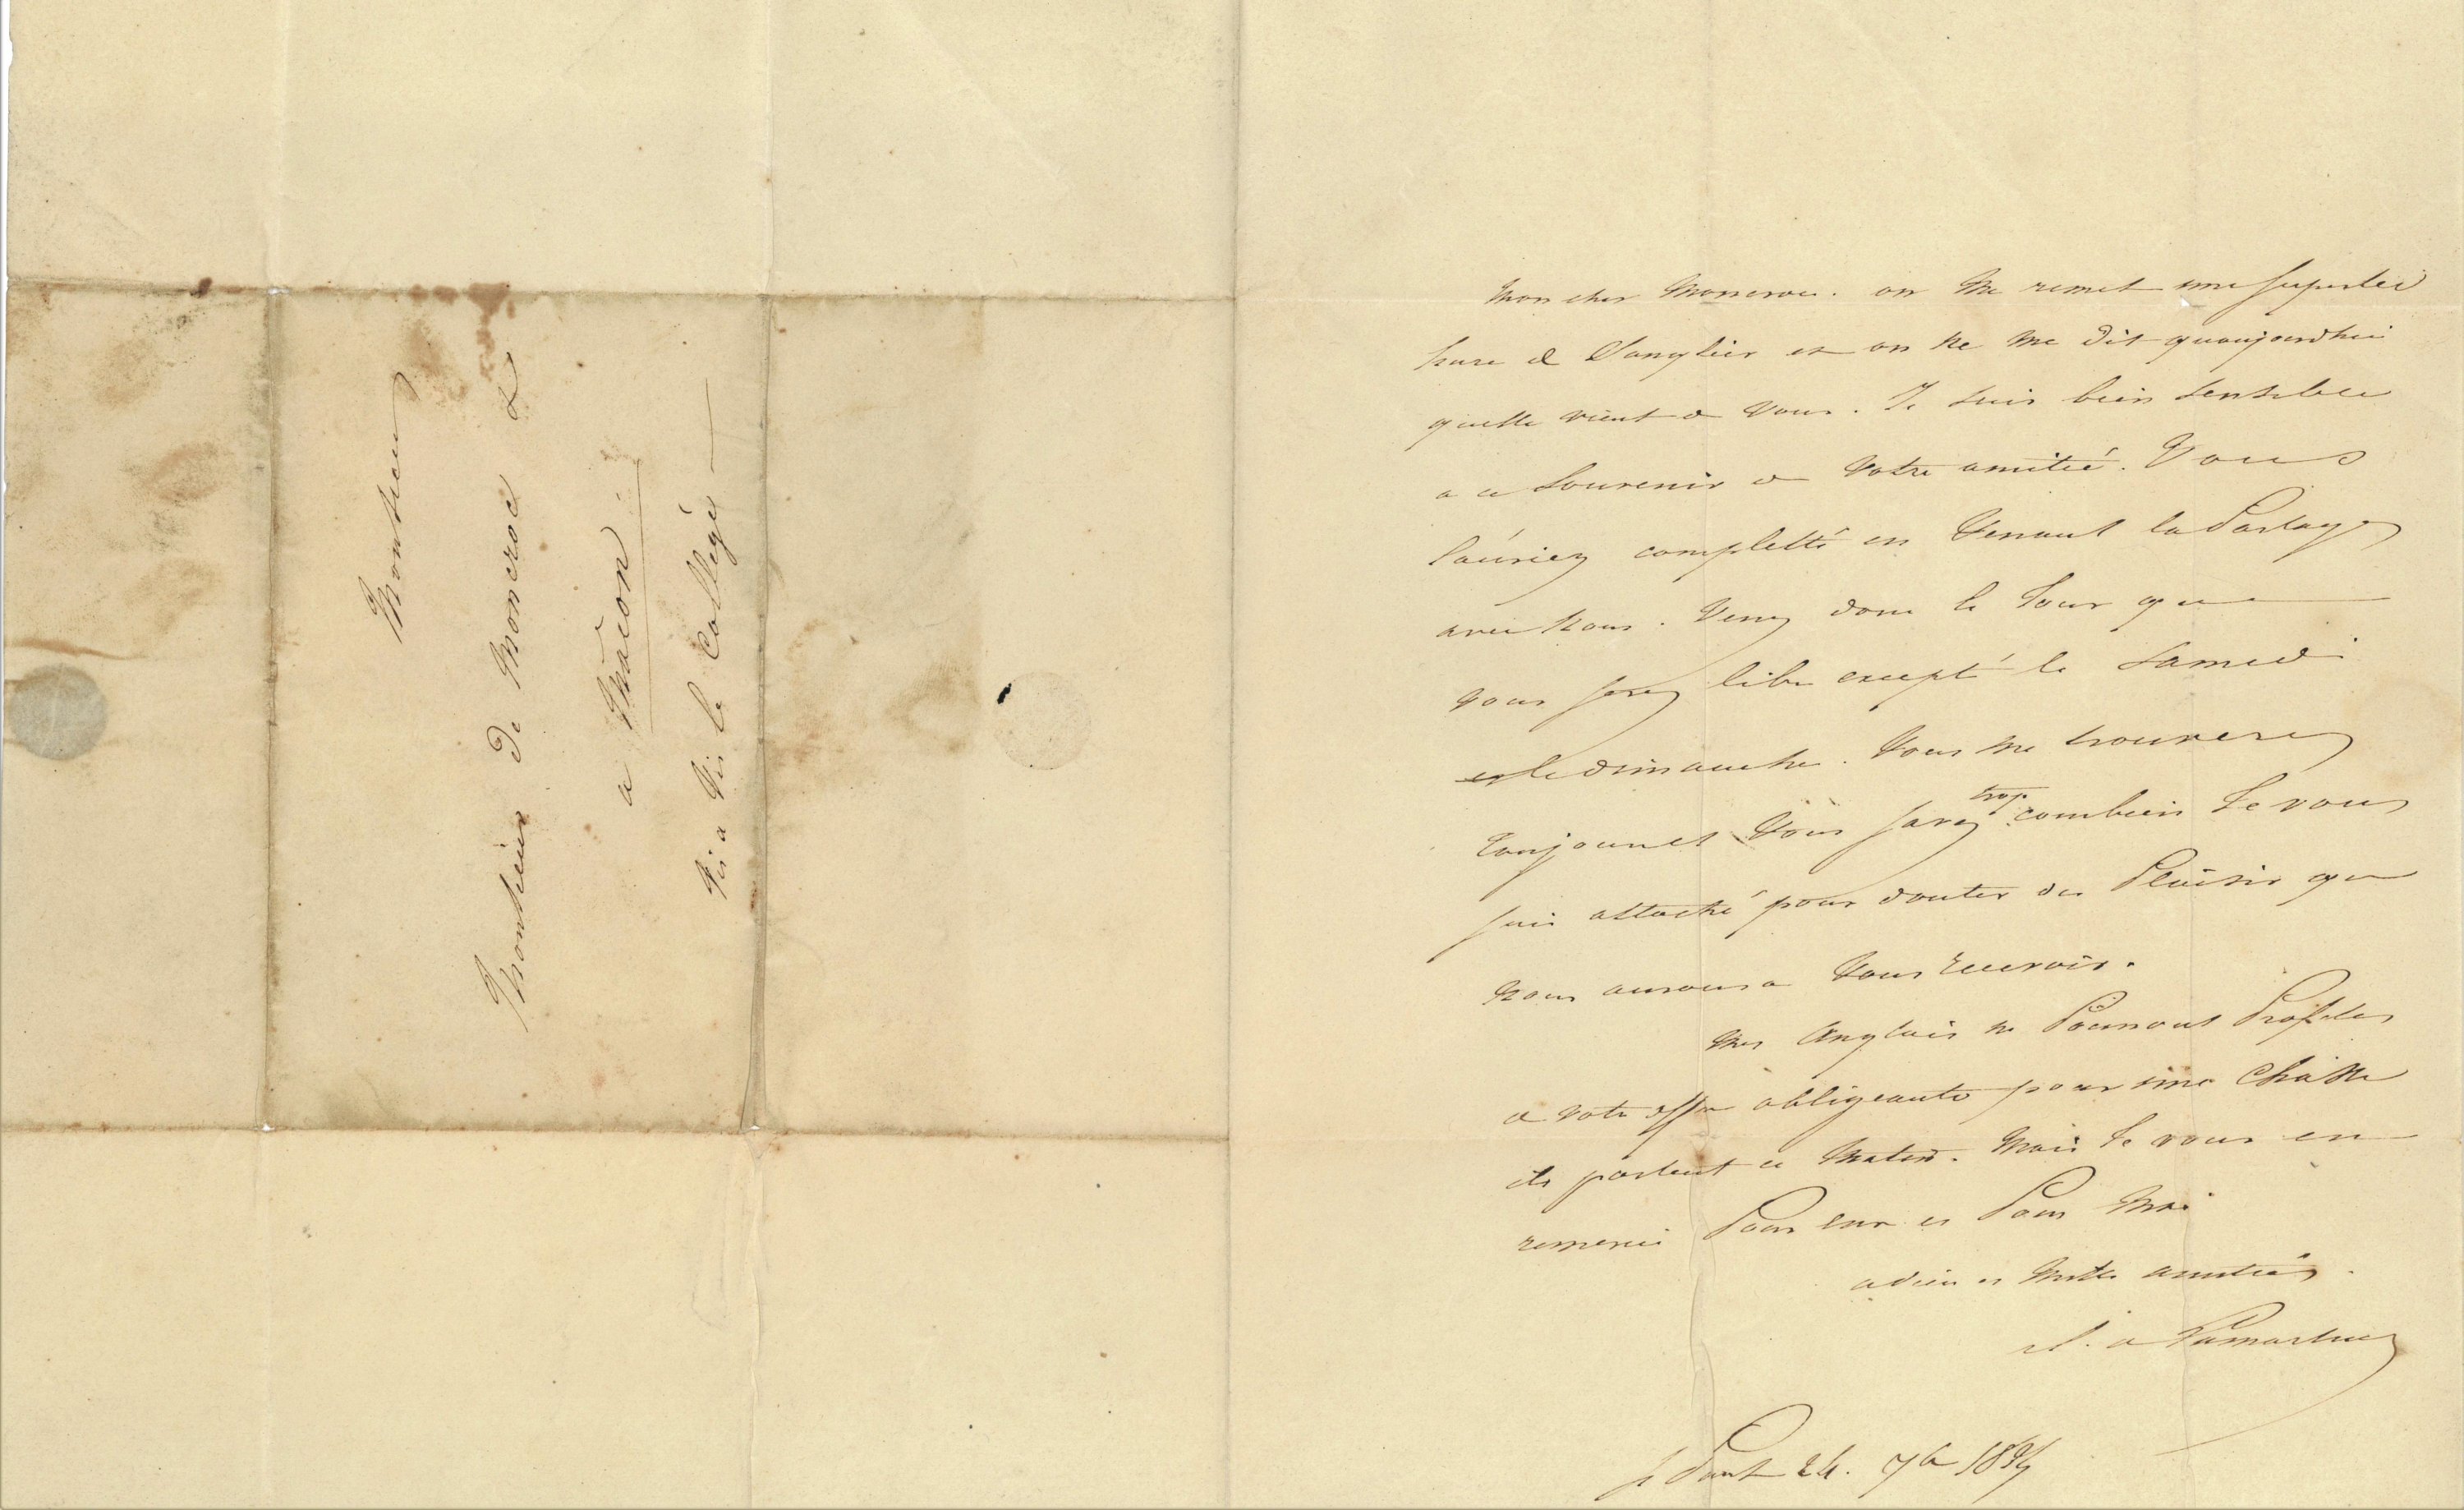 Monsieur
Monsieur de Moncroc
a Macon.
Vis a Vis le Collège
Mon cher Moncroc. on me remet une superbe
hure de Sanglier et on ne me dit quaujourdhui
quelle vient de vous. Je suis bien sensible
a ce souvenir de votre amitié. Vous
lauriez completté en venant la Partager
avec nous. Venez donc le Jour que
vous serez libre excepté le Samedi
et le dimanche. Vous me trouverez
toujours et Vous savez trop combien Je vous
suis attaché pour douter du Plaisir que
nous aurons a Vous recevoir.
Mes Anglais ne Pourront Profiter
de votre offre obligeante pour une chasse
ils partent ce matin. Mais Je vous en
remercie Pour eux et Pour Moi
adieu et mille amitiés.
al. de Lamartine
St Point 24. 7b